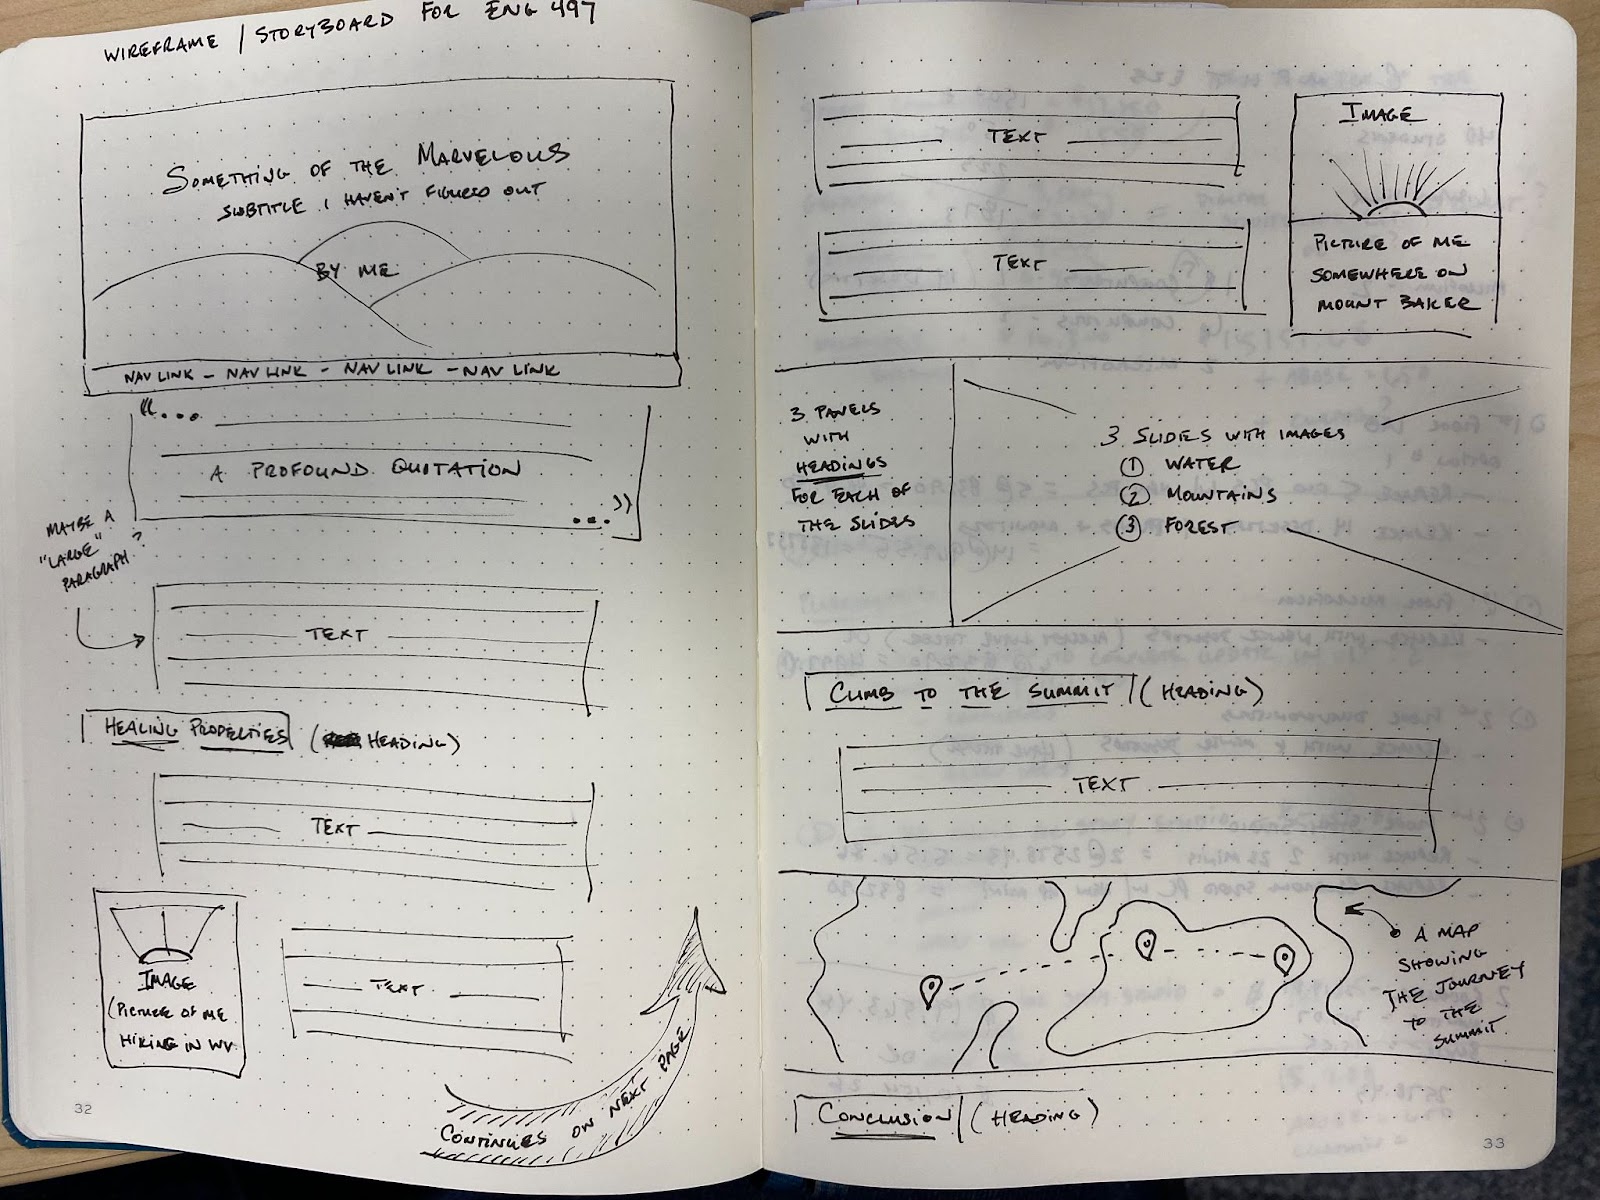 WIREFRAME / STORYBOARD FOR ENG 497
SOMETHING OF THE MARVELOUS
SUBTITLE I HAVEN'T FIGURED OUT
BY ME
NAV LINK - NAV LINK - NAV LINK - NAV LINK
“...
A PROFOUND QUOTATION
...”
MAYBE A
"LARGE"
PARAGRAPH?
TEXT
HEALING PROPERTIES (HEADING)
TEXT
IMAGE
(PICTURE OF ME
HIKING IN WV
TEXT
CONTINUES ON NEXT PAGE
32
TEXT
TEXT
IMAGE
PICTURE OF ME
SOMEWHERE ON
MOUNT BAKER
3 PANELS
WITH
HEADINGS
FOR EACH OF
THE SLIDES
3 SLIDES WITH IMAGES
① WATER
② MOUNTAINS
③ FOREST
CLIMB TO THE SUMMIT (HEADING)
TEXT
A MAP
SHOWING
THE JOURNEY
TO THE
SUMMIT
CONCLUSION (HEADING)
33